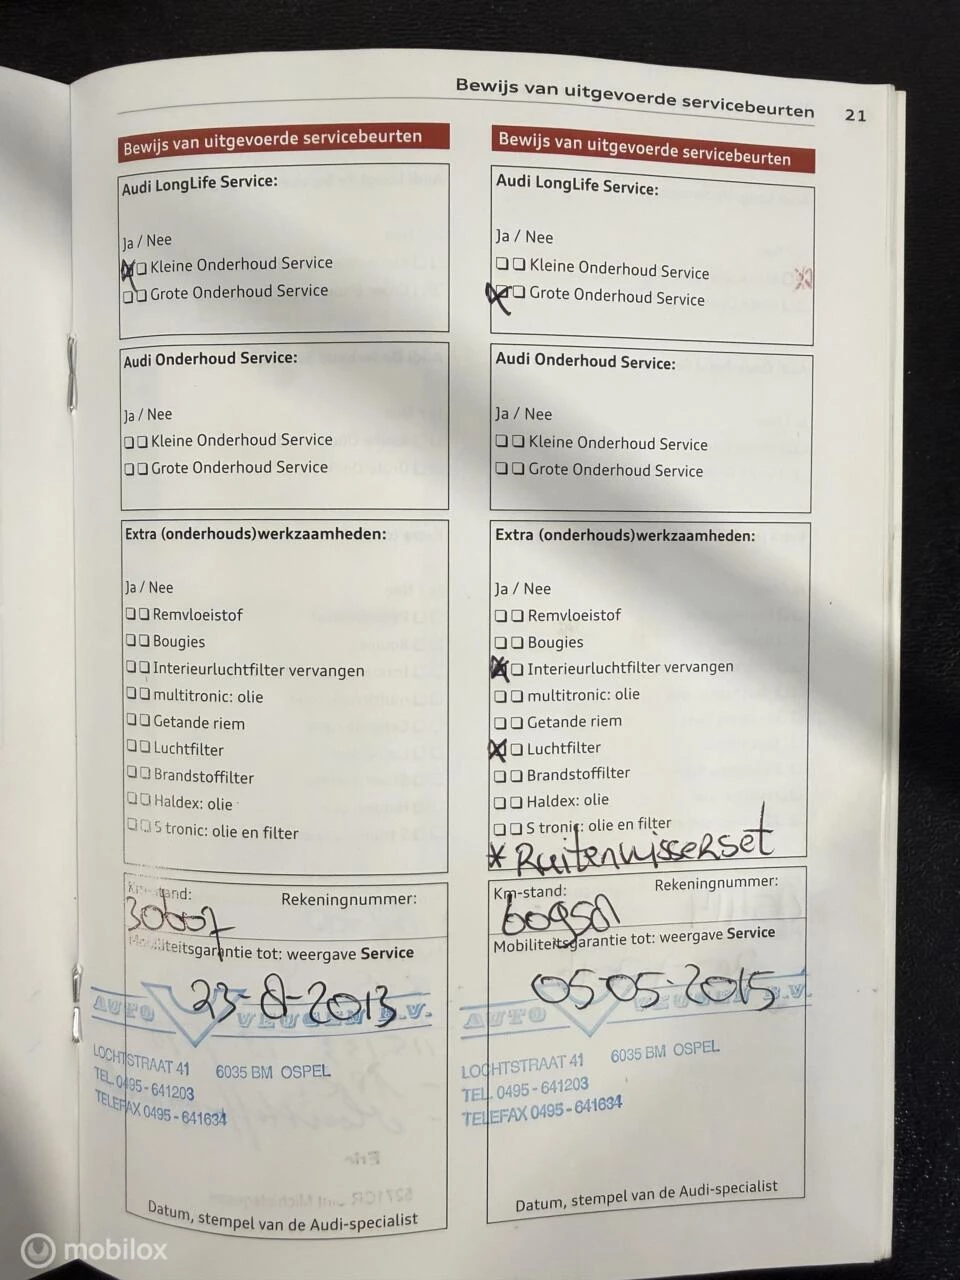 Bewijs van uitgevoerde servicebeurten 21
Bewijs van uitgevoerde servicebeurten
Audi LongLife Service:
Ja / Nee
Kleine Onderhoud Service
Grote Onderhoud Service
Audi Onderhoud Service:
Ja / Nee
Kleine Onderhoud Service
Grote Onderhoud Service
Extra (onderhouds)werkzaamheden:
Ja / Nee
Remvloeistof
Bougies
Interieurluchtfilter vervangen
multitronic: olie
Getande riem
Luchtfilter
Brandstoffilter
Haldex: olie
S tronic: olie en filter
Km-stand: Rekeningnummer:
30607
Mobiliteitsgarantie tot: weergave Service
23-8-2013
AUTO VEUGEN B.V.
LOCHTSTRAAT 41 6035 BM OSPEL
TEL. 0495-641203
TELEFAX 0495-641634
Datum, stempel van de Audi-specialist
Bewijs van uitgevoerde servicebeurten
Audi LongLife Service:
Ja / Nee
Kleine Onderhoud Service
Grote Onderhoud Service
Audi Onderhoud Service:
Ja / Nee
Kleine Onderhoud Service
Grote Onderhoud Service
Extra (onderhouds)werkzaamheden:
Ja / Nee
Remvloeistof
Bougies
Interieurluchtfilter vervangen
multitronic: olie
Getande riem
Luchtfilter
Brandstoffilter
Haldex: olie
S tronic: olie en filter
* Ruitenwisserset
Km-stand: Rekeningnummer:
Mobiliteitsgarantie tot: weergave Service
05-05-2015
AUTO VEUGEN B.V.
LOCHTSTRAAT 41 6035 BM OSPEL
TEL. 0495-641203
TELEFAX 0495-641634
Datum, stempel van de Audi-specialist
mobilox